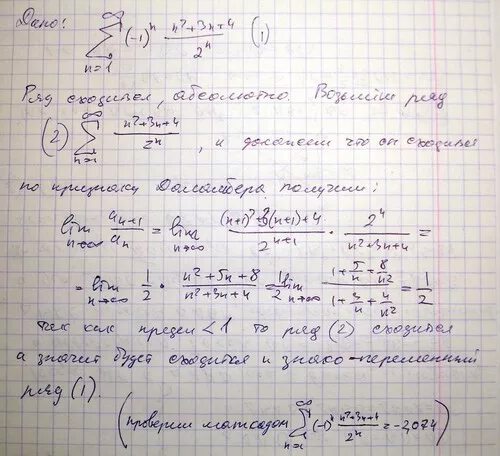 Дано: ∑_{n=1}^{∞} (-1)^n (n²+3n+4)/2^n (1)
Ряд сходится, абсолютно. Возьмём ряд
(2) ∑_{n=1}^{∞} (n²+3n+4)/2^n , и докажем что он сходится
по признаку Даламбера получим:
lim_{n→∞} a_{n+1}/a_n = lim_{n→∞} ((n+1)²+3(n+1)+4)/2^{n+1} · 2^n/(n²+3n+4) =
= lim_{n→∞} 1/2 · (n²+5n+8)/(n²+3n+4) = 1/2 lim_{n→∞} (1+5/n+8/n²)/(1+3/n+4/n²) = 1/2
так как предел < 1 то ряд (2) сходится
а значит будет сходится и знако-переменный
ряд (1).
(проверим маткадом ∑_{n=1}^{∞} (-1)^n (n²+3n+4)/2^n = -2,074)